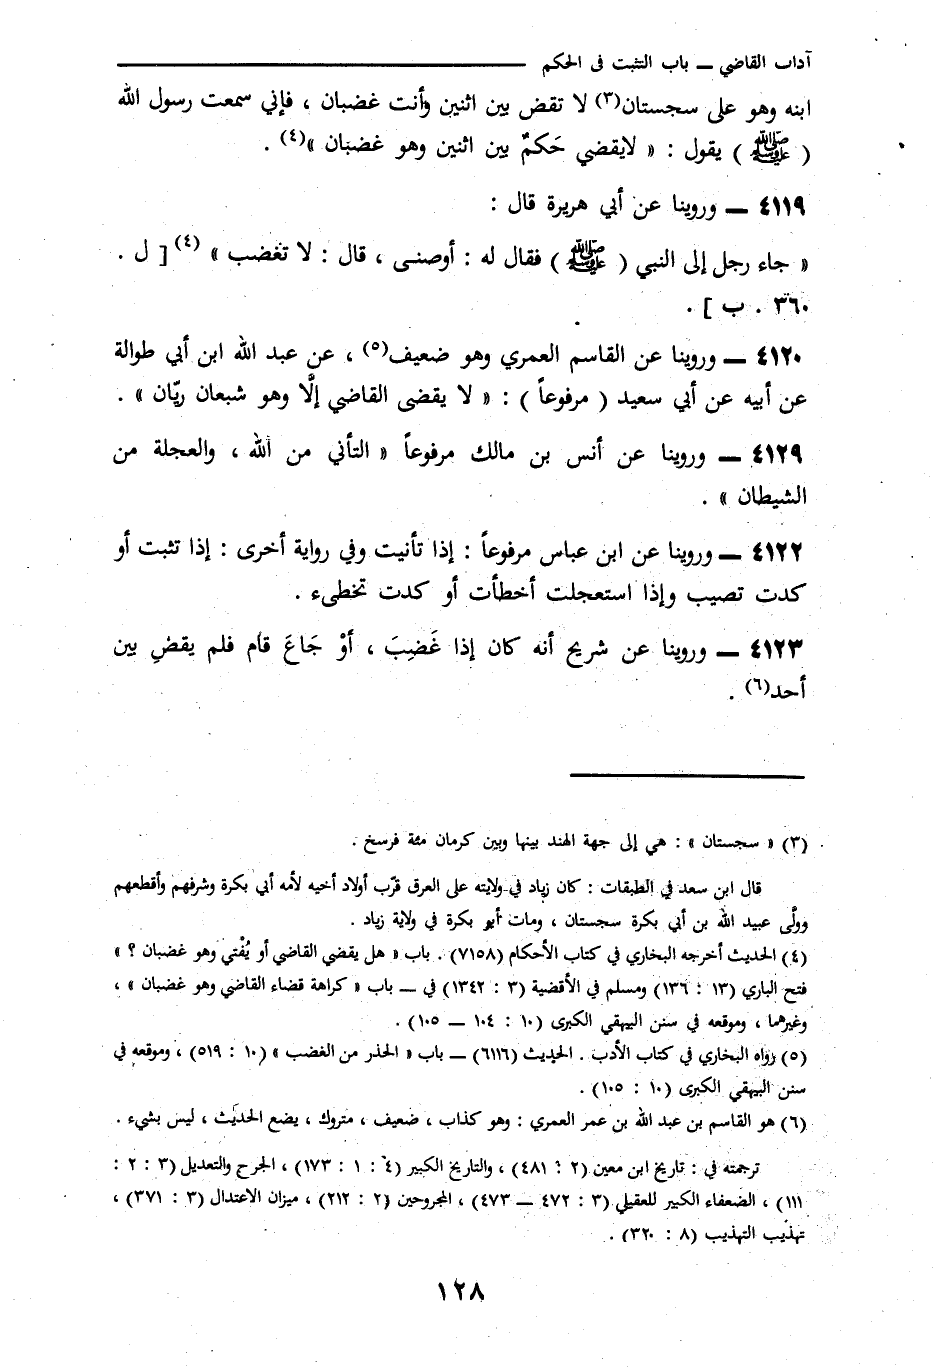 آداب القاضي ــ باب التثبت فى الحكم
ابنه وهو على سجستان(٣) لا تقض بين اثنين وأنت غضبان ، فإني سمعت رسول الله
( ﷺ ) يقول : « لايقضي حَكمٌ بين اثنين وهو غضبان »(٤) .
٤١١٩ ــ وروينا عن أبي هريرة قال :
« جاء رجل إلى النبي ( ﷺ ) فقال له : أوصنى ، قال : لا تغضب » (٤) [ ل .
٣٦٠ . ب ] .
٤١٢٠ ــ وروينا عن القاسم العمري وهو ضعيف(٥) ، عن عبد الله ابن أبي طوالة
عن أبيه عن أبي سعيد ( مرفوعاً ) : « لا يقضى القاضي إلَّا وهو شبعان ريّان » .
٤١٢٩ ــ وروينا عن أنس بن مالك مرفوعاً « التأني من الله ، والعجلة من
الشيطان » .
٤١٢٢ ــ وروينا عن ابن عباس مرفوعاً : إذا تأنيت وفي رواية أخرى : إذا تثبت أو
كدت تصيب وإذا استعجلت أخطأت أو كدت تخطىء .
٤١٢٣ ــ وروينا عن شريح أنه كان إذا غَضِبَ ، أوْ جَاعَ قام فلم يقضِ بين
أحد(٦) .
(٣) « سجستان » : هي إلى جهة الهند بينها وبين كرمان مئة فرسخ .
قال ابن سعد في الطبقات : كان زياد في ولايته على العرق قرّب أولاد أخيه لأمه أبي بكرة وشرفهم وأقطعهم
وولَّى عبيد الله بن أبي بكرة سجستان ، ومات أبو بكرة في ولاية زياد .
(٤) الحديث أخرجه البخاري في كتاب الأحكام (٧١٥٨) . باب « هل يقضي القاضي أو يُفْتي وهو غضبان ؟ »
فتح الباري (١٣ : ١٣٦) ومسلم في الأقضية (٣ : ١٣٤٢) في ــ باب « كراهة قضاء القاضي وهو غضبان » ،
وغيرهما ، وموقعه في سنن البيهقي الكبرى (١٠ : ١٠٤ ــ ١٠٥) .
(٥) رواه البخاري في كتاب الأدب . الحديث (٦١١٦) ــ باب « الحذر من الغضب » (١٠ : ٥١٩) ، وموقعه في
سنن البيهقي الكبرى (١٠ : ١٠٥) .
(٦) هو القاسم بن عبد الله بن عمر العمري : وهو كذاب ، ضعيف ، متروك ، يضع الحديث ، ليس بشيء .
ترجمته في : تاريخ ابن معين (٢ : ٤٨١) ، والتاريخ الكبير (٤ : ١ : ١٧٣) ، الجرح والتعديل (٣ : ٢ :
١١١) ، الضعفاء الكبير للعقيلي (٣ : ٤٧٢ ــ ٤٧٣) ، المجروحين (٢ : ٢١٢) ، ميزان الاعتدال (٣ : ٣٧١) ،
تهذيب التهذيب (٨ : ٣٢٠) .
١٢٨